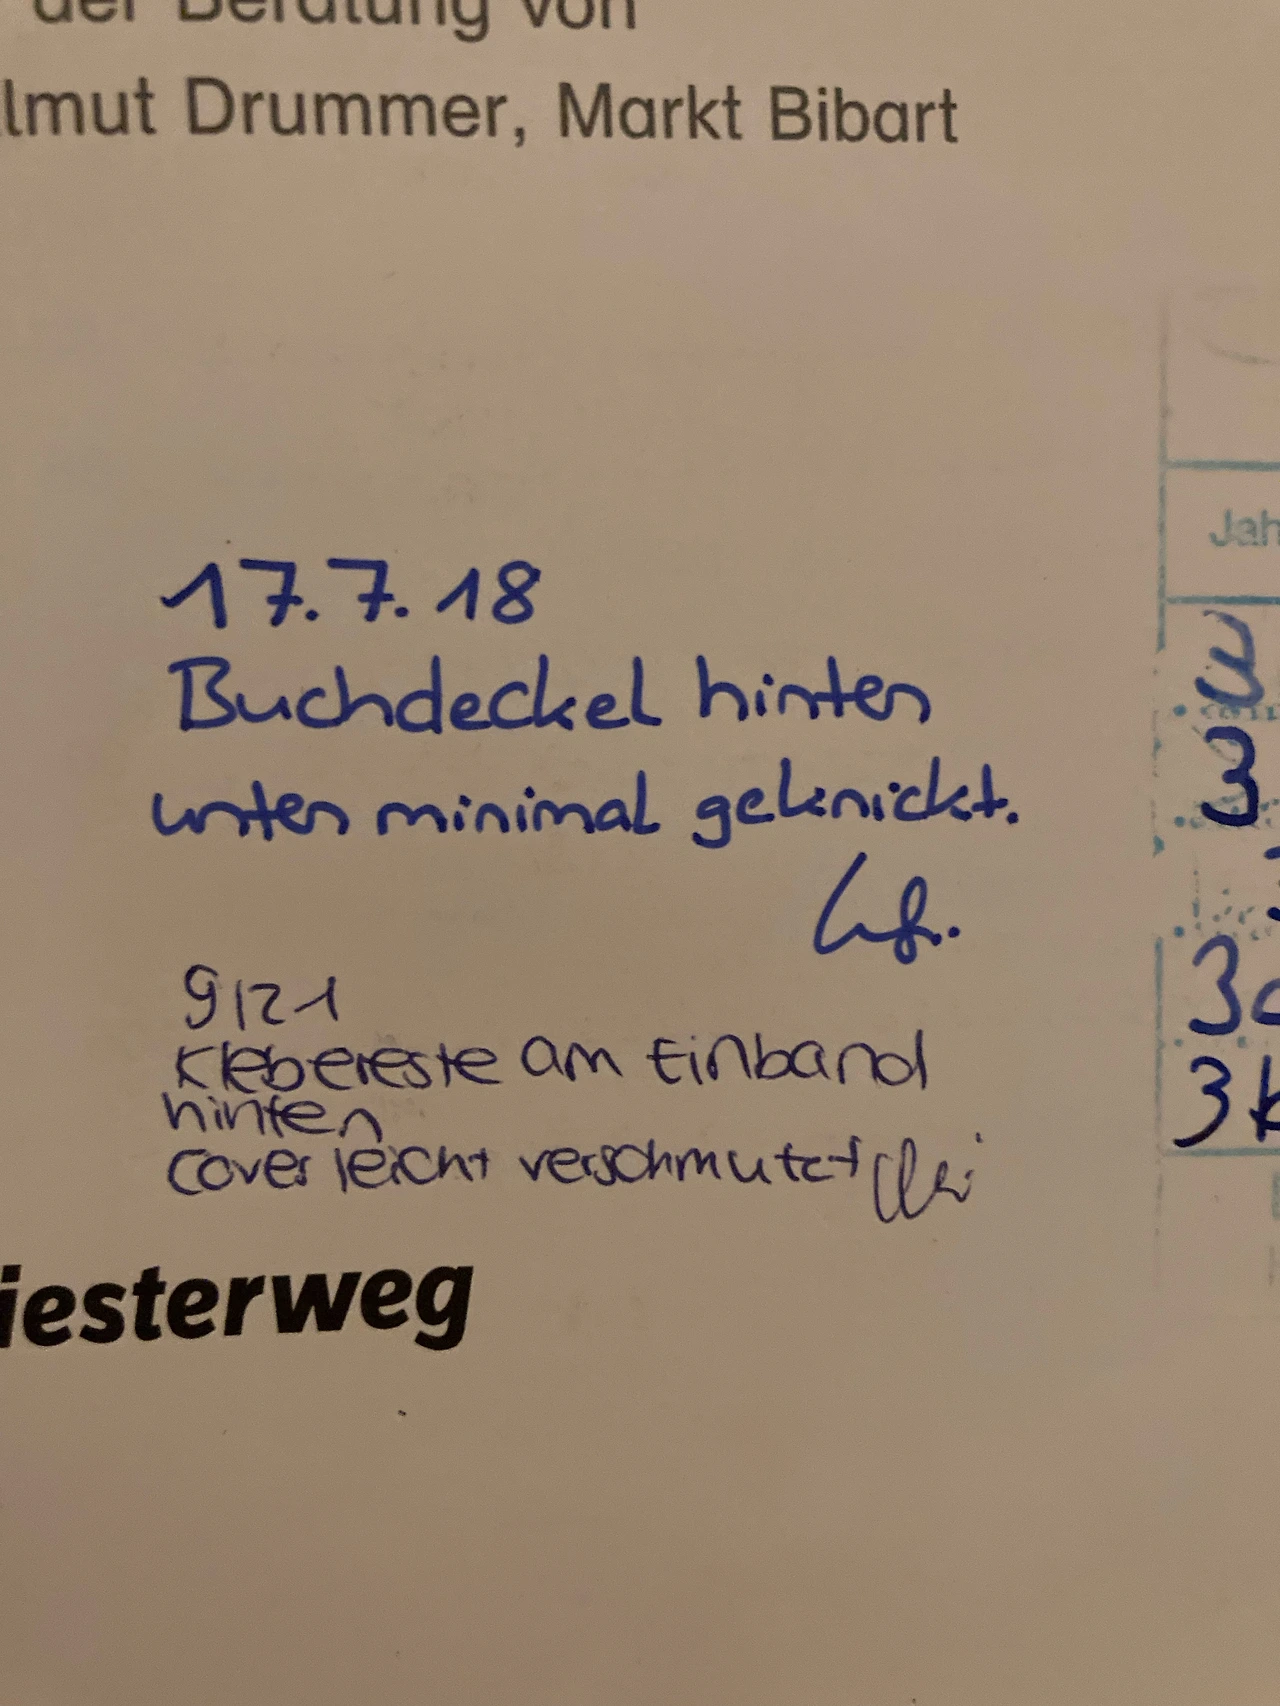 der Beratung von
lmut Drummer, Markt Bibart
Jah
17.7.18
Buchdeckel hinten
unten minimal geknickt.
9/21
Klebereste am Einband
hinten
Cover leicht verschmutzt
iesterweg
3
3
3b